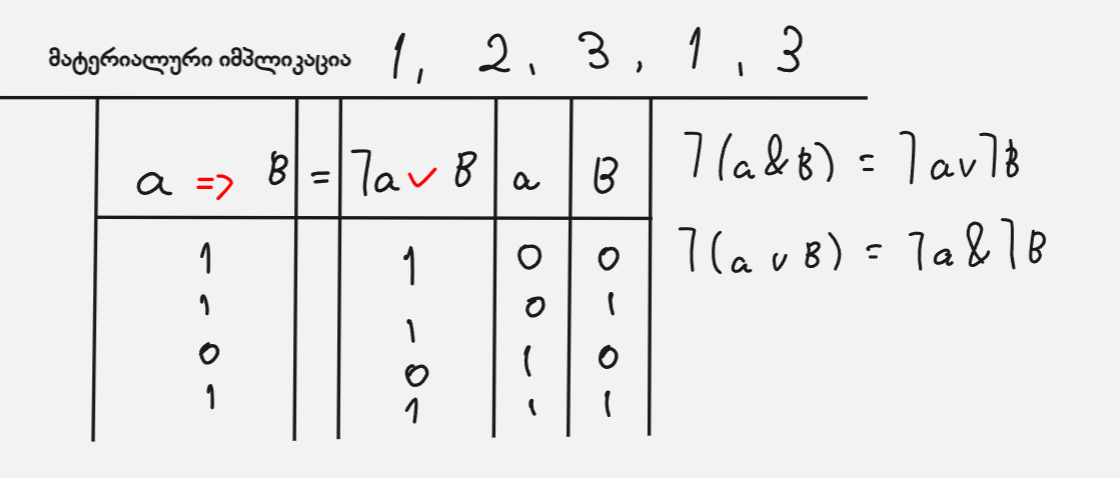 მატერიალური იმპლიკაცია 1, 2, 3, 1, 3
a => B = ⅂a ∨ B a B
1 1 0 0
1 1 0 1
0 0 1 0
1 1 1 1
⅂(a & B) = ⅂a ∨ ⅂B
⅂(a ∨ B) = ⅂a & ⅂B